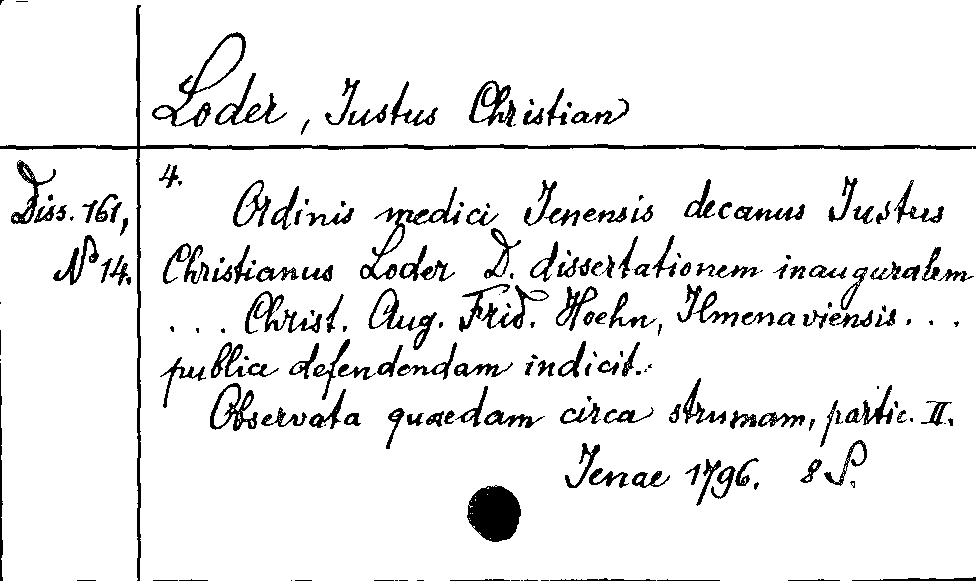 Loder, Iustus Christian
Diss. 161,
No 14.
4.
Ordinis medici Ienensis decanus Iustus
Christianus Loder D. dissertationem inauguralem
... Christ. Aug. Frid. Hoehn, Ilmenaviensis ...
publice defendendam indicit.
Observata quaedam circa strumam, partic. II.
Ienae 1796. 8 S.